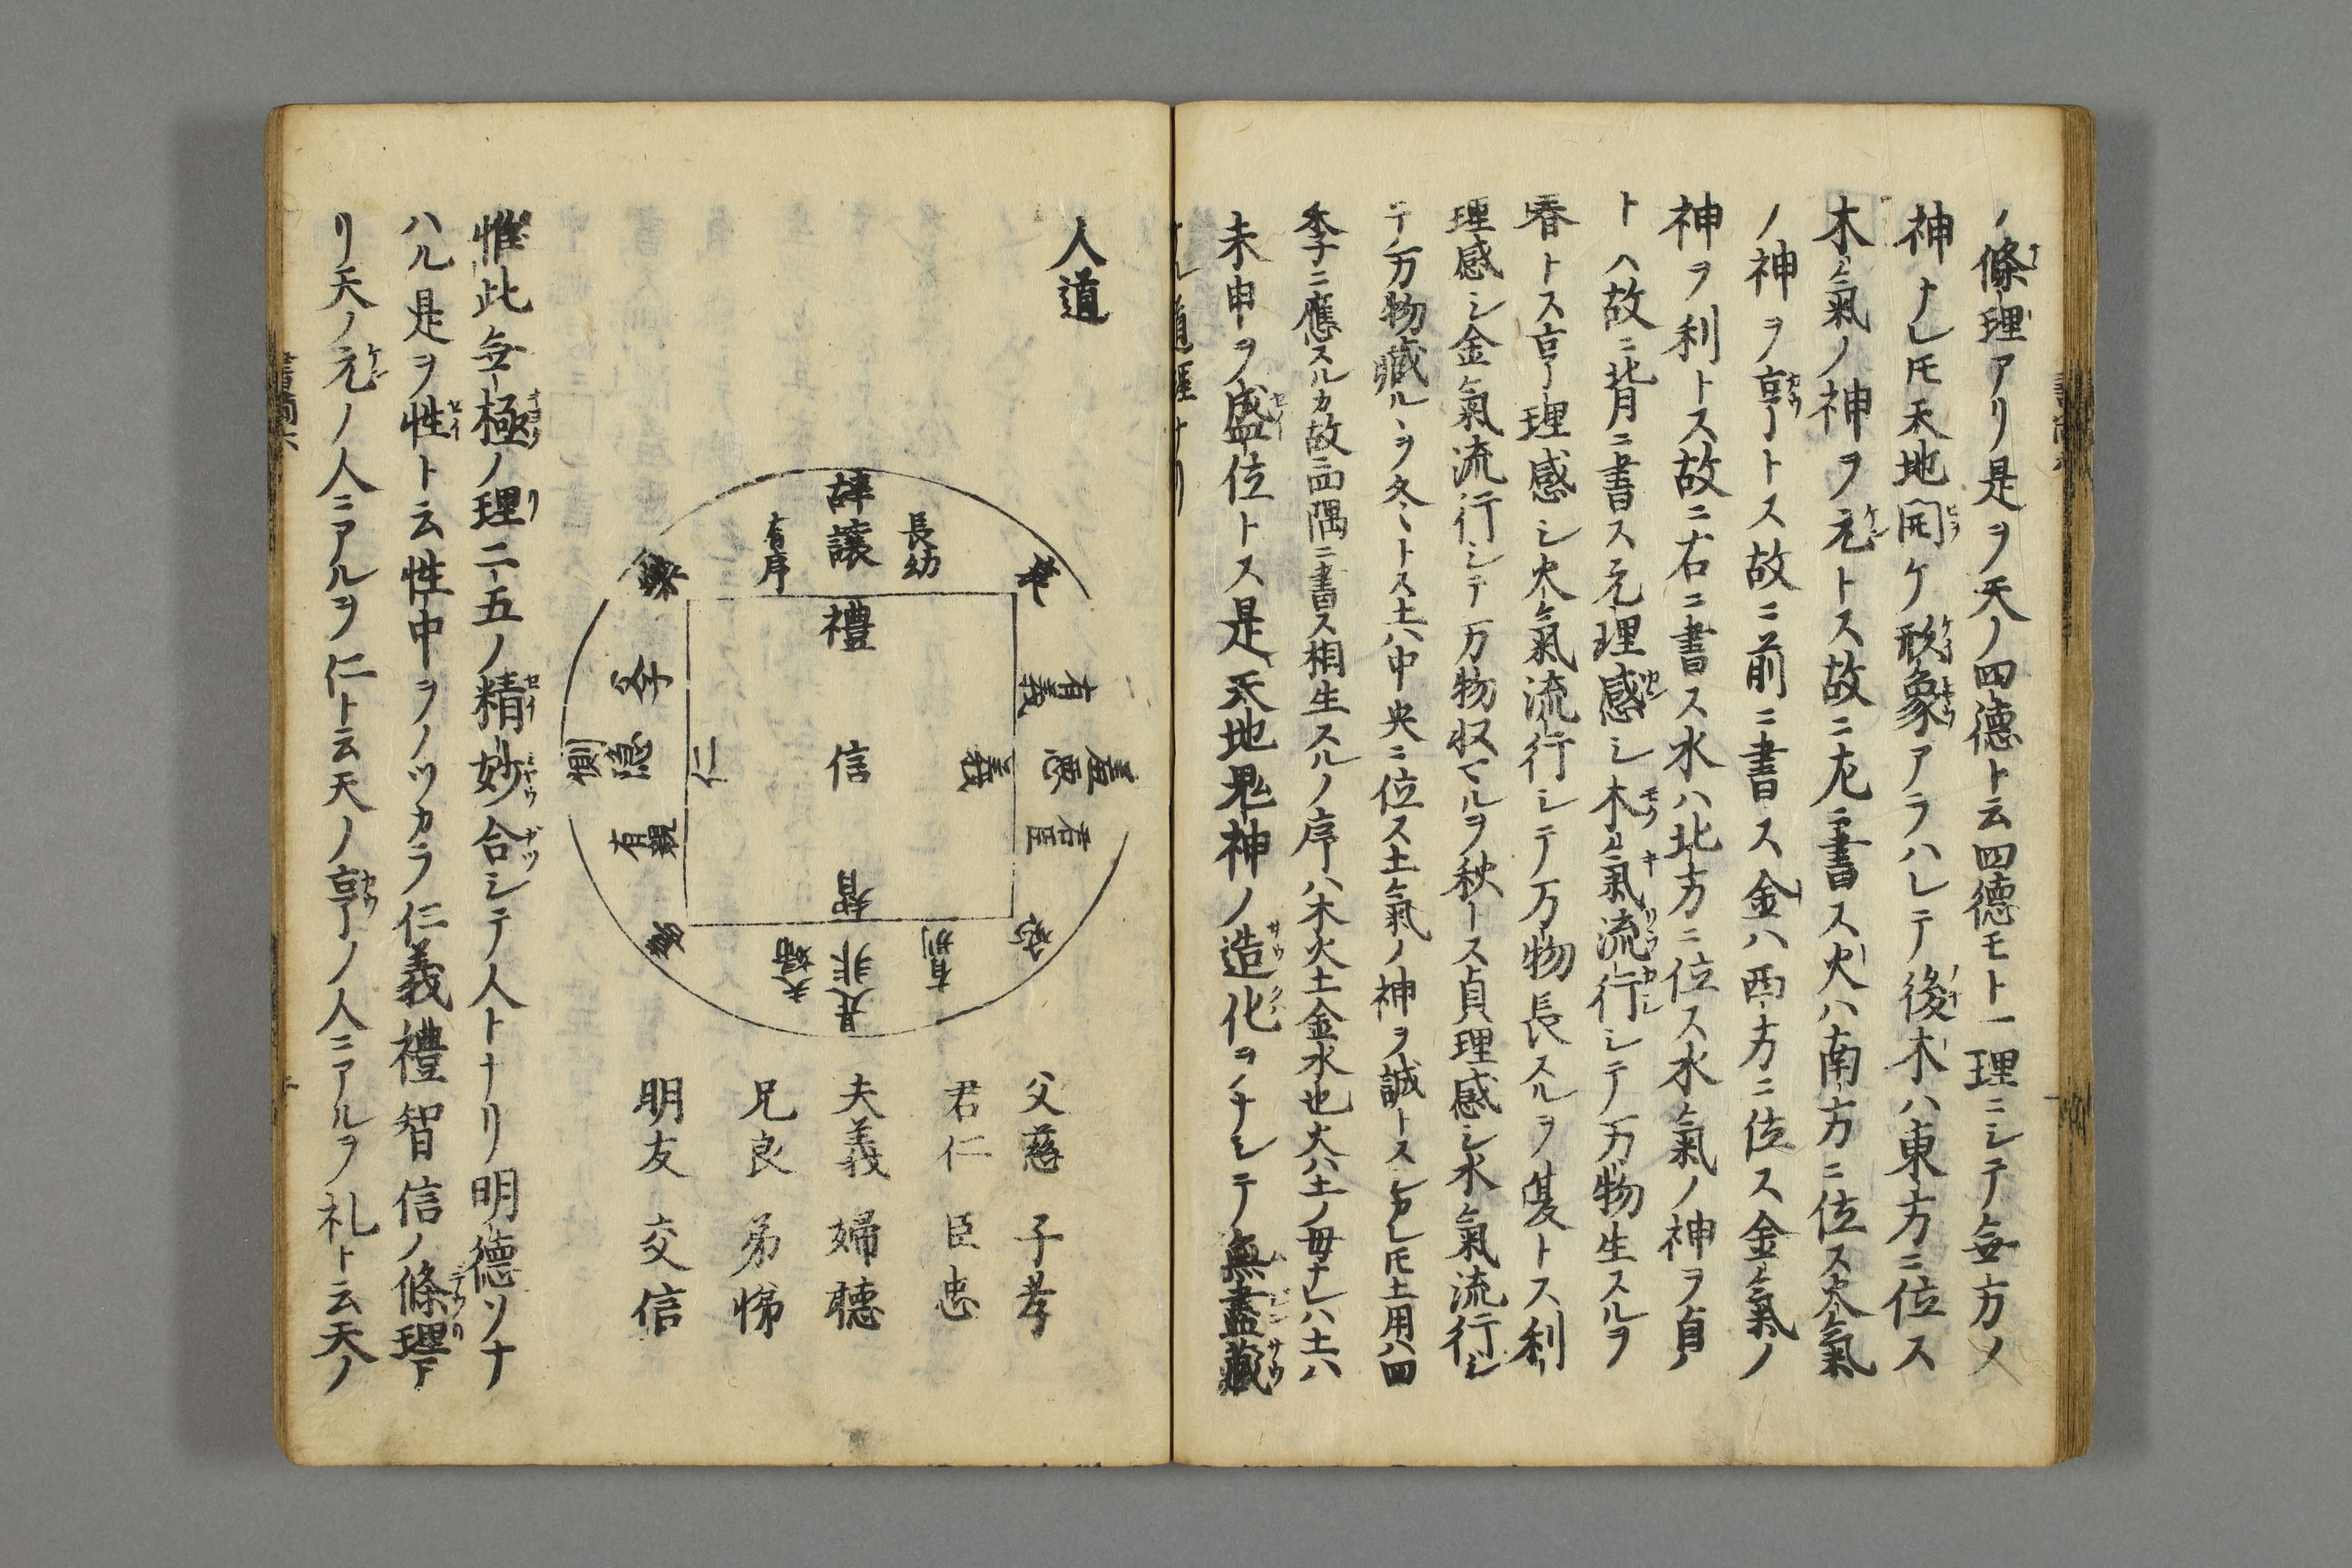 ノ條理アリ是ヲ天ノ四德ト云四德モト一理ニシテ無方ノ
神ナレ𪜈天地開ケ形象アラハレテ後木ハ東方ニ位ス
木氣ノ神ヲ元トス故ニ左ニ書ス火ハ南方ニ位ス火氣
ノ神ヲ亨トス故ニ前ニ書ス金ハ西方ニ位ス金氣ノ
神ヲ利トス故ニ右ニ書ス水ハ北方ニ位ス水氣ノ神ヲ貞
トヘ故ニ背ニ書ス元理感シ木氣流行シテ万物生スルヲ
春トス亨理感シ火氣流行シテ万物長スルヲ夏トス利
理感シ金氣流行シテ万物収マルヲ秋トス貞理感シ水氣流行シ
テ万物臧ルヽヲ冬トス土ハ中央ニ位ス土氣ノ神ヲ誠トス𪜈土用ハ四
季ニ應スルカ故四隅ニ書ス相生スルノ序ハ木火土金水也火ハ土ノ母ナレハ土ハ
未申ヲ盛位トス是天地鬼神ノ造化ヲナシテ無盡藏
人道
辞讓
長幼
有序
禮
信
仁
義
智
有義
羞惡
君臣
惻隠
父子
有親
是非
夫婦
有別
父慈 子孝
君仁 臣忠
夫義 婦聴
兄良 弟悌
朋友 交信
惟此無極ノ理二五ノ精妙合シテ人トナリ明德ソナ
ハル是ヲ性ト云性中ヲノツカラ仁義禮智信ノ條理ア
リ天ノ元ノ人ニアルヲ仁ト云天ノ亨ノ人ニアルヲ礼ト云天ノ